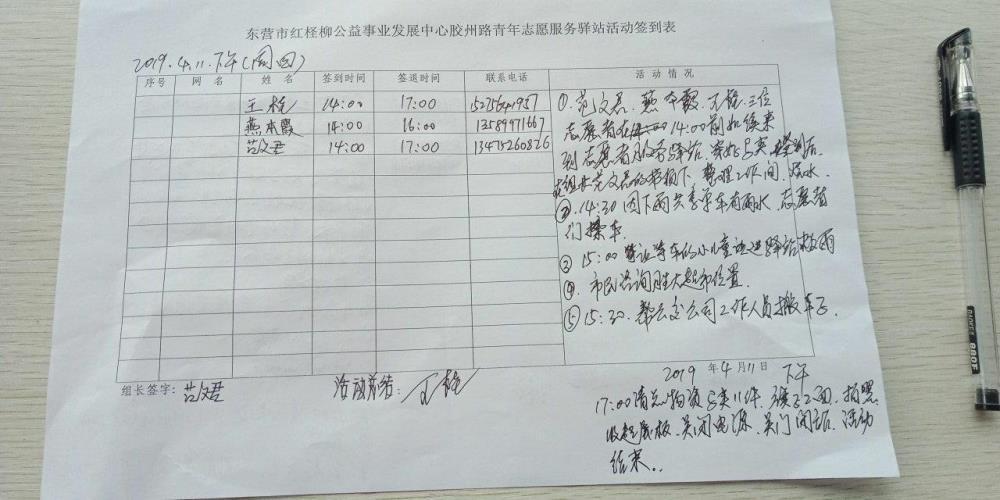 东营市红柽柳公益事业发展中心胶州路青年志愿服务驿站活动签到表
2019.4.11.下午(周四)
序号 网名 姓名 签到时间 签退时间 联系电话 活动情况
王栓 14:00 17:00
燕本霞 14:00 16:00 13589971667
范文君 14:00 17:00 13475260826
①.范文君.燕本霞.王栓.三位
志愿者在14:00前如约来
到志愿者服务驿站.签到后
范文君的带领下.整理工作间.烧水.
②.14:30因下雨共享单车有雨水.志愿者
们擦车.
③15:00 等车的小儿童进驿站避雨
④.市民咨询胜大超市位置.
⑤15:30.帮公交公司工作人员搬车子.
组长签字:范文君 活动总结:王栓
2019年4月11日 下午
17:00清点物资 类11件.拍照.
收起展板.关闭电源.关门闭站.活动
结束..